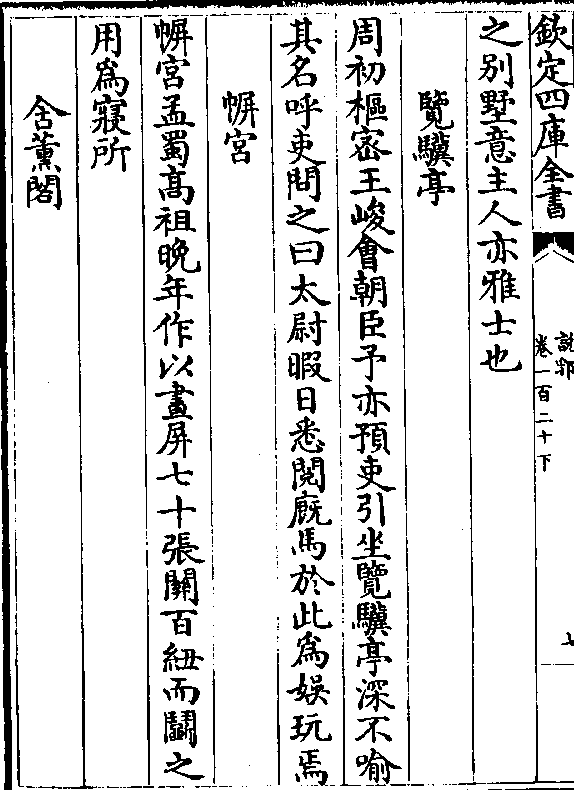 欽定四庫全書
說郛
卷一百二十下
七
之别墅意主人亦雅士也
覽驥亭
周初樞密王峻會朝臣予亦預吏引坐覽驥亭深不喻
其名呼吏問之曰太尉暇日悉閱廐馬於此為娱玩焉
幈宮
幈宮孟蜀髙祖晚年作以畫屏七十張關百紐而鬭之
用為寢所
含薰閣